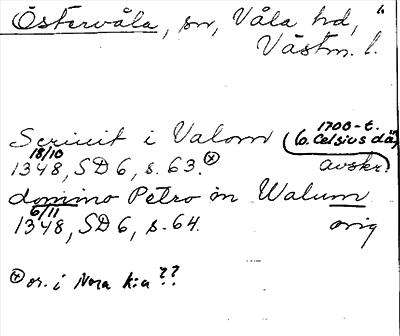 Östervåla, sn, Våla hd,
Västm. l.
Scriuit i Valom (1700-t. (o. Celsius då)
18/10 1348, SD 6, s. 63. ⊗ avskr.
domino Petro in Walum
6/11 1348, SD 6, s. 64. orig
⊗ or. i Nora k:a ??